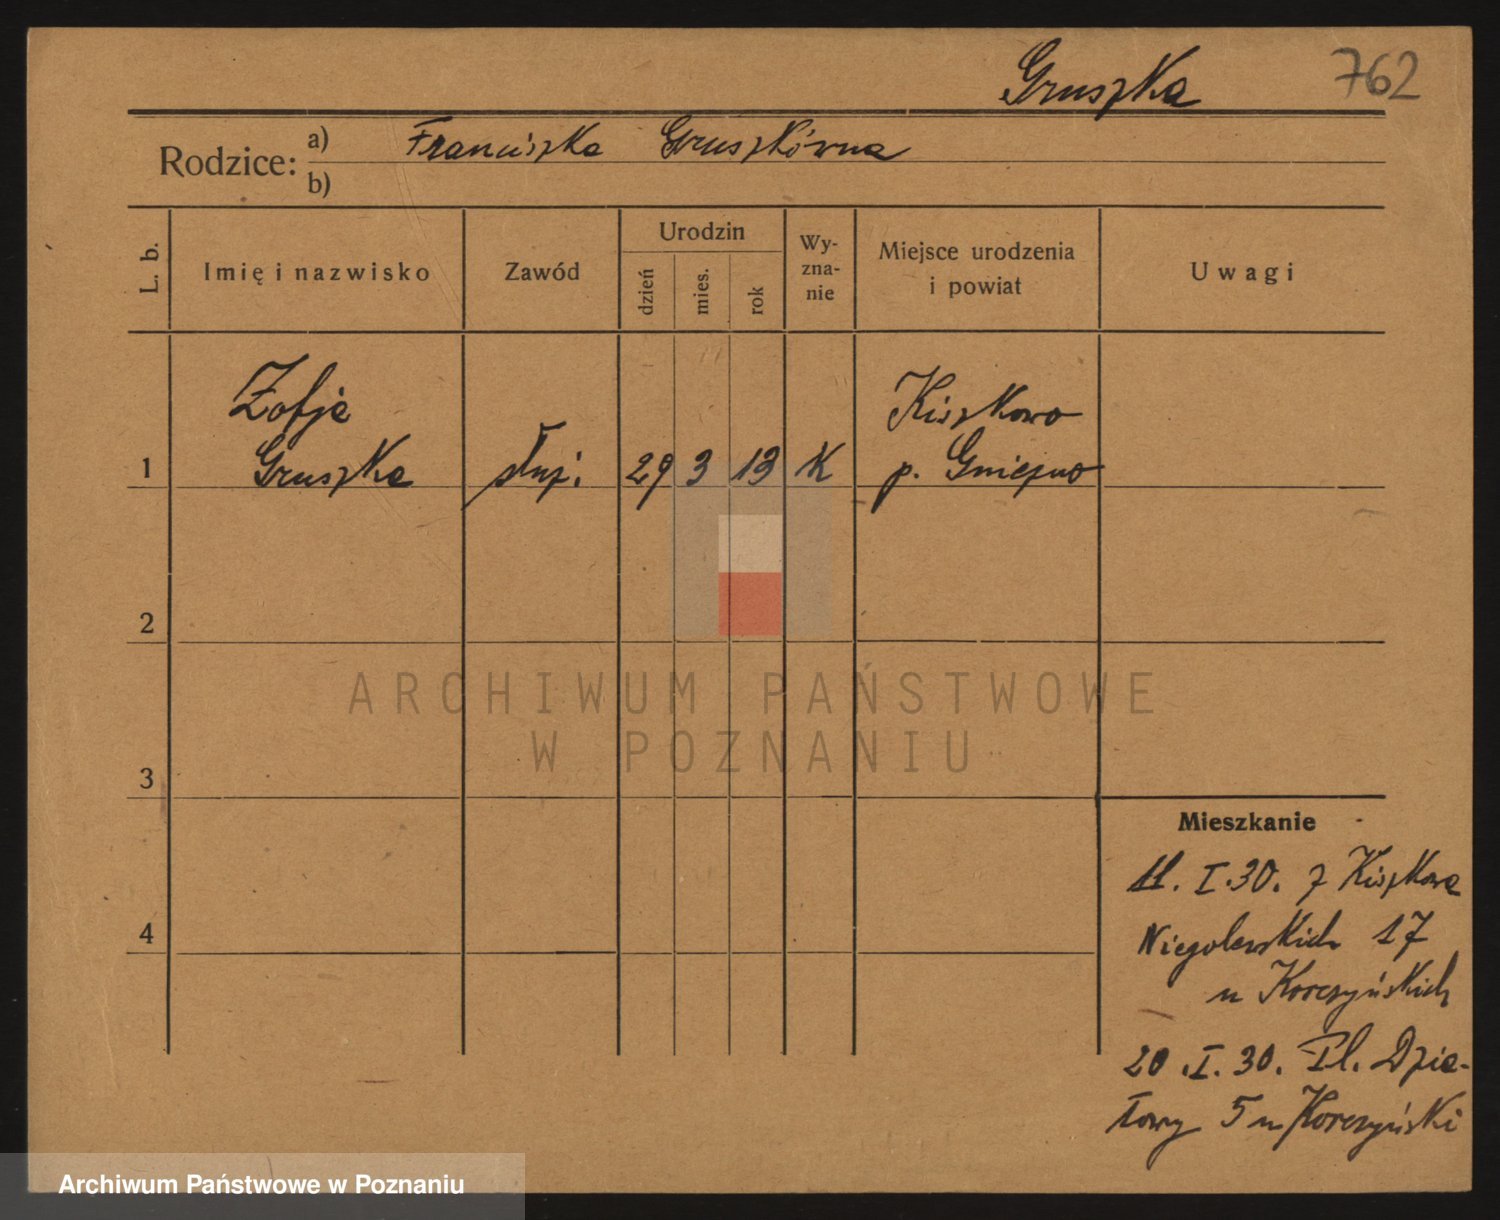 Gruszka 762
Rodzice: a) Franciszka Gruszkówna
b)
L. b. Imię i nazwisko Zawód Urodzin dzień mies. rok Wy-zna-nie Miejsce urodzenia i powiat Uwagi
Zofja Kiszkowo
1 Gruszka służ. 29 3 13 K p. Gniezno
2
ARCHIWUM PAŃSTWOWE
W POZNANIU
3
Mieszkanie
11. I. 30. z Kiszkowa
4 Niegolewskich 17
u Korczyńskich
20. I. 30. Pl. Dzia-
łowy 5 u Korczyński
Archiwum Państwowe w Poznaniu